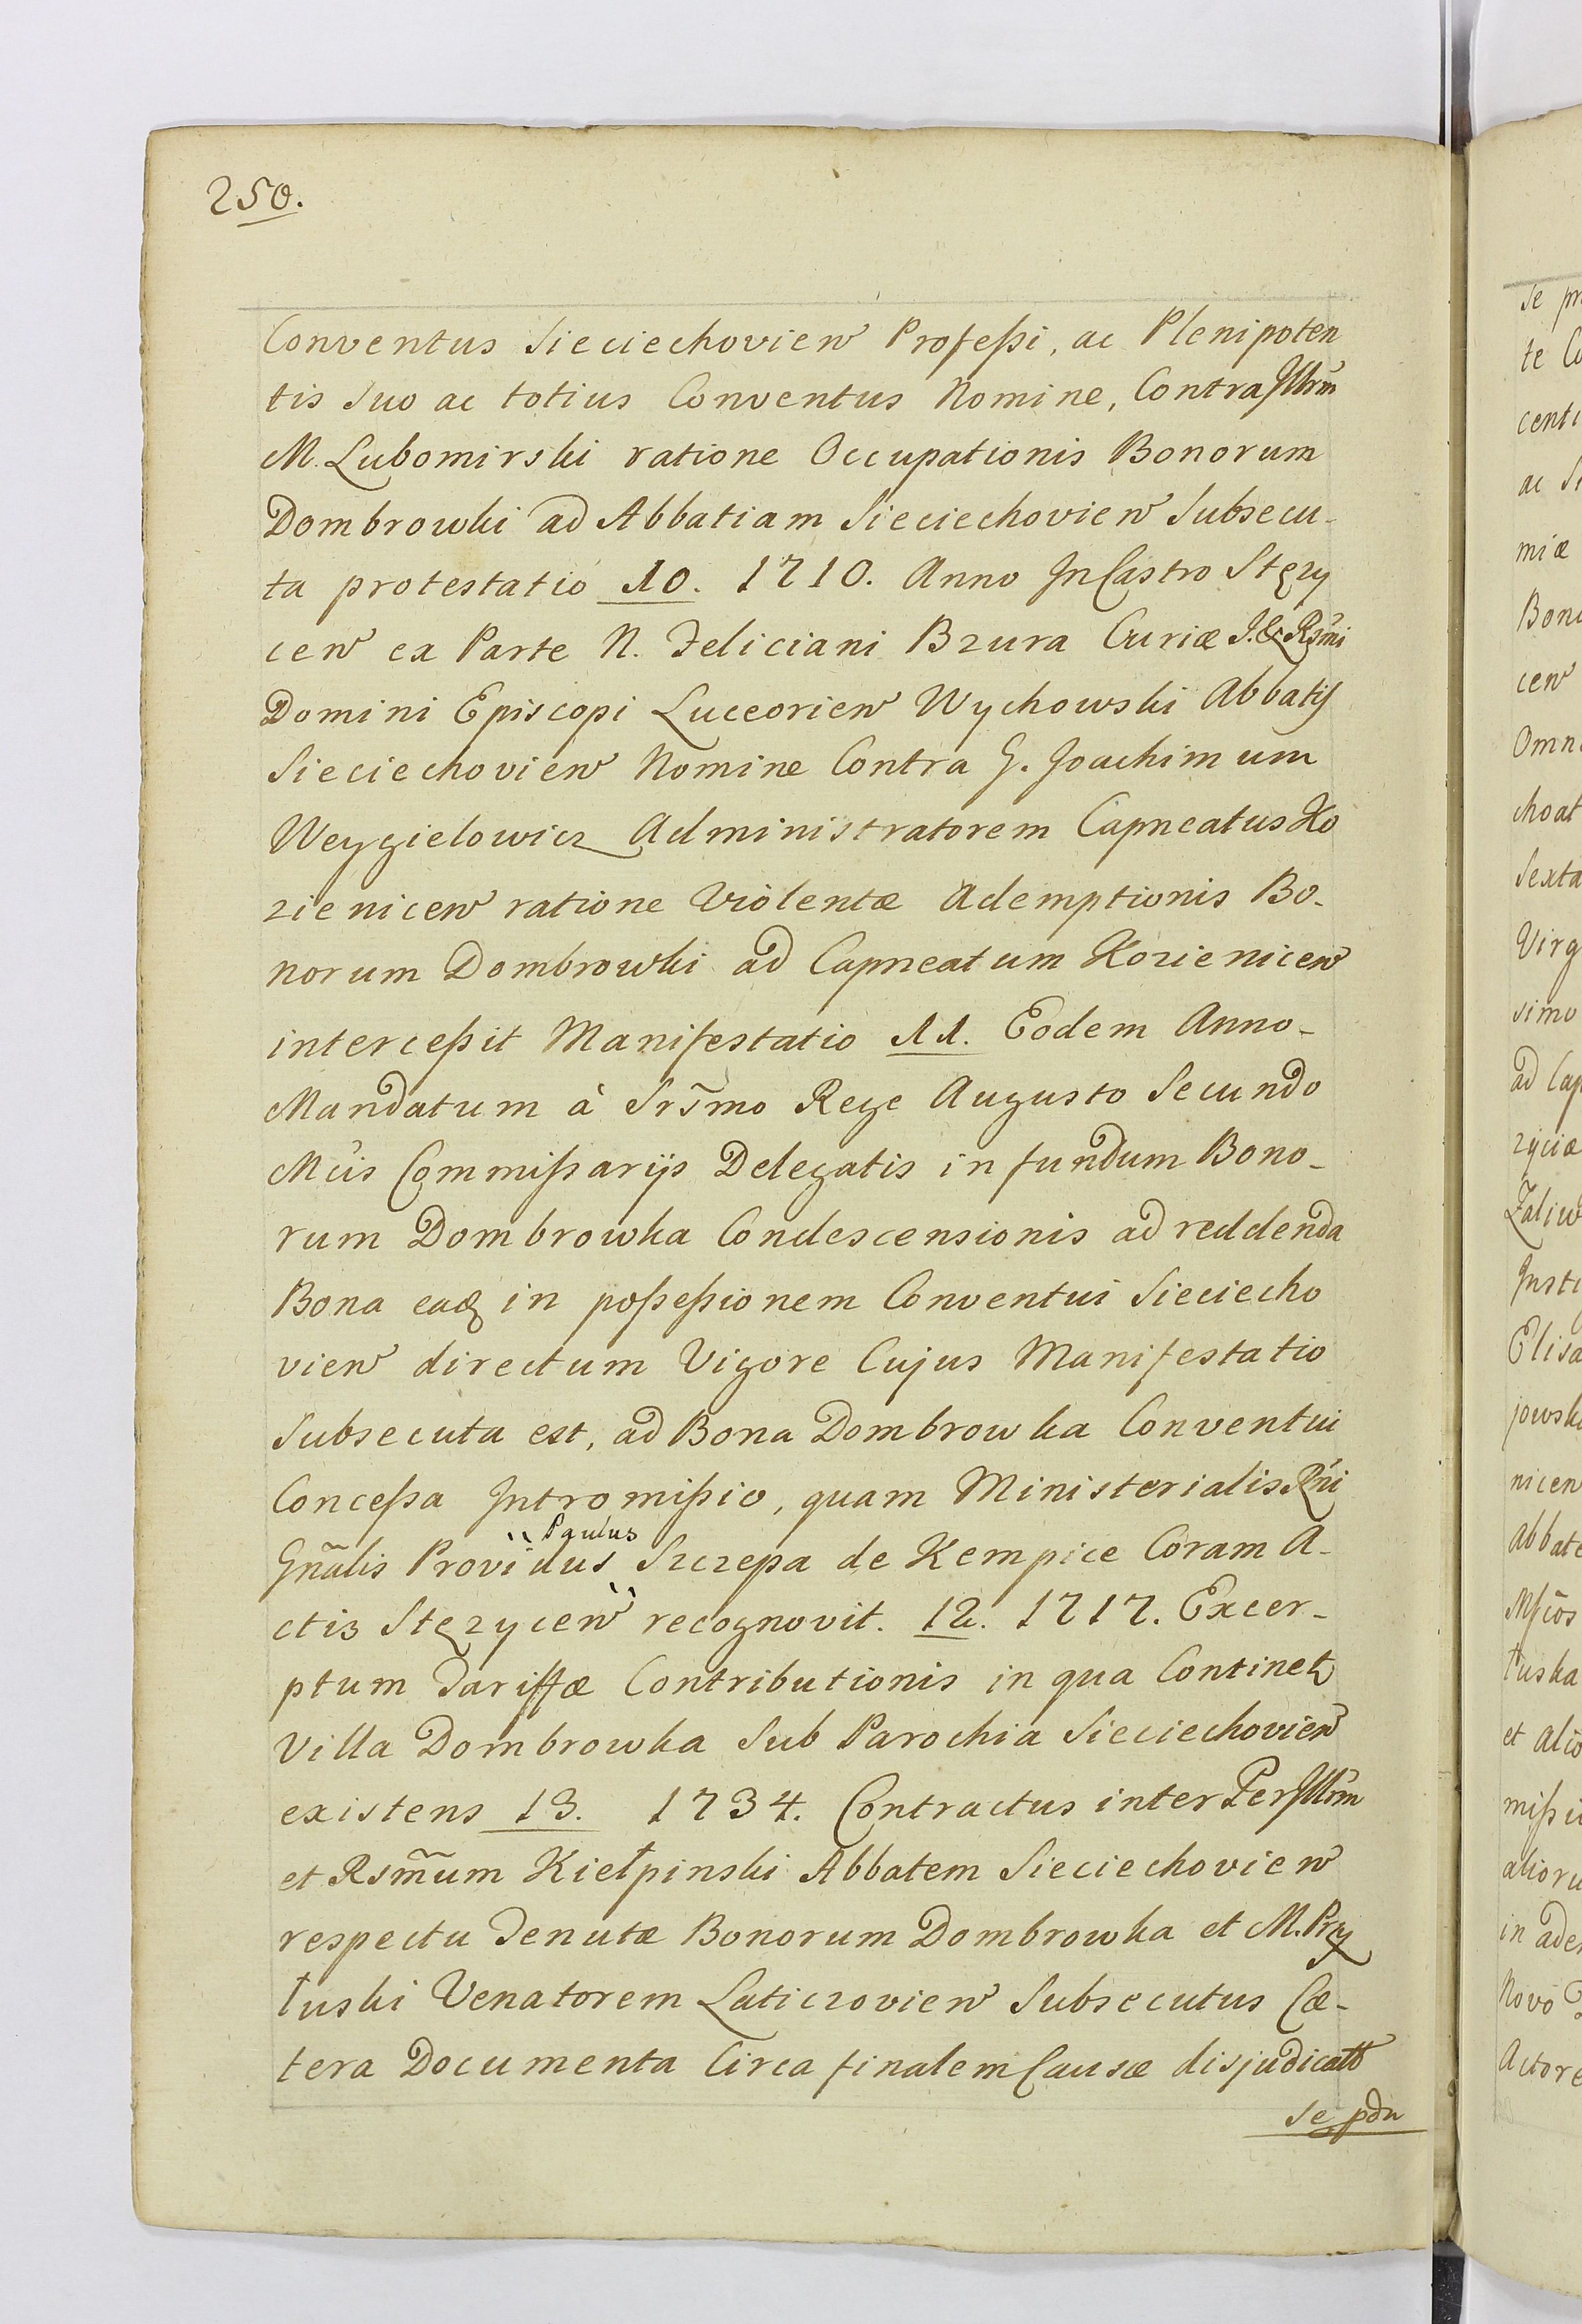 250.
Conventus Sieciechovien Profeßi, ac Plenipoten
tis Suo ac totius Conventus Nomine, Contra Illrm
M. Lubomirski ratione Occupationis Bonorum
Dombrowki ad Abbatiam Sieciechovien Subsecu-
ta protestatio 10. 1710. Anno In Castro Stęzy
cen ex Parte N. Feliciani Bzura Curiæ I. & Rsmi
Domini Episcopi Luceorien Wychowski Abbatis
Sieciechovien Nomine Contra G. Joachimum
Weygielowicz Administratorem Capneatus Ko
zienicen ratione Violentæ Ademptionis Bo-
norum Dombrowki ad Capneatum Kozienicen
interceßit Manifestatio 11. Eodem Anno-
Mandatum à Srs̃mo Rege Augusto Secundo
Mcis Commißarijs Delegatis in fundum Bono-
rum Dombrowka Condescensionis ad reddenda
Bona eaq in poßeßionem Conventui Sieciecho
vien directum Vigore Cujus Manifestatio
Subsecuta est, ad Bona Dombrowka Conventui
Conceßa Intromißio, quam Ministerialis Rni
Gñalis Providus Paulus Szczepa de Kempice Coram A-
ctis Stęzycen recognovit. 12. 1717. Excer-
ptum Tariffæ Contributionis in qua Continet
Villa Dombrowka Sub Parochia Sieciechovien
existens 13. 1734. Contractus inter Per Illrm
et Rsm̃um Kiełpinski Abbatem Sieciechovien
respectu Tenutæ Bonorum Dombrowka et M. Pry
łuski Venatorem Laticzovien Subsecutus Cæ-
tera Documenta Circa finalem Causæ disjudicatt
se pdn
se
te
centi
ac
miæ
cen
choat
Sexta
Virg
simo
ad Cap
zyciæ
Elisa
jowsk
nicen
Abbate
łuska
et alio
mißi
alioru
in ade
Novo
Actore